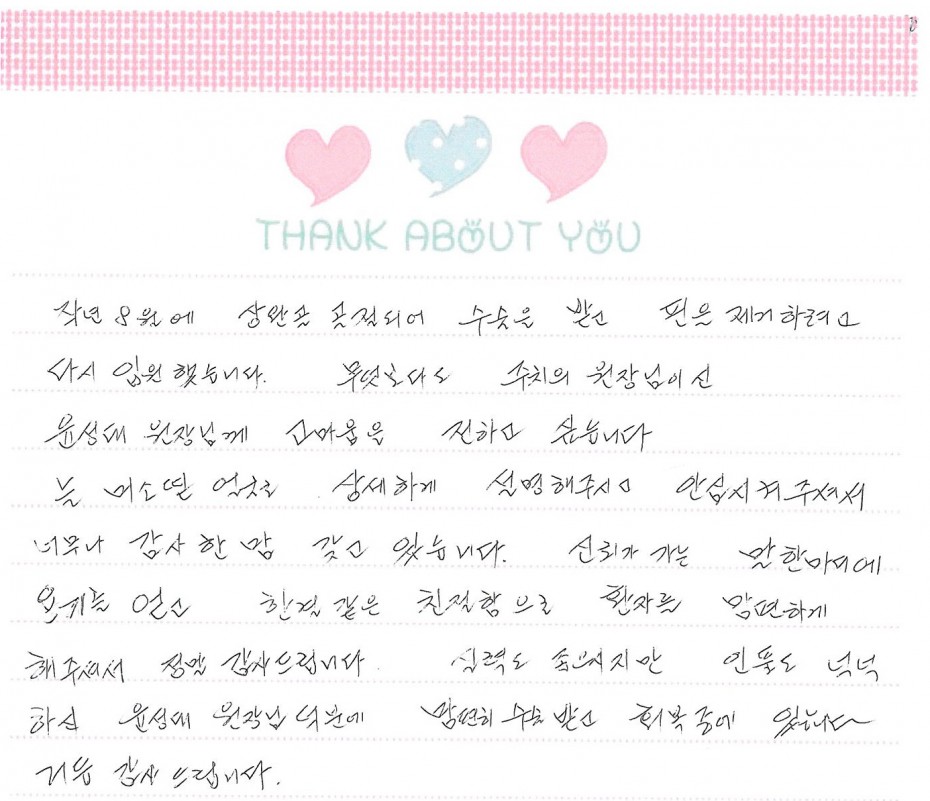 THANK ABOUT YOU
작년 8월에 상완골 골절되어 수술을 받고 핀을 제거하려고
다시 입원했습니다. 무엇보다도 주치의 원장님이신
윤성대 원장님께 고마움을 전하고 싶습니다
늘 미소띤 얼굴로 상세하게 설명해주시고 안심시켜주셔서
너무나 감사한 맘 갖고 있습니다. 신뢰가 가는 말 한마디에
용기를 얻고 한결 같은 친절함으로 환자를 맘편하게
해주셔서 정말 감사드립니다. 실력도 좋으시지만 인품도 넉넉
하신 윤성대 원장님 덕분에 맘편히 수술 받고 회복중에 있습니다
거듭 감사드립니다.